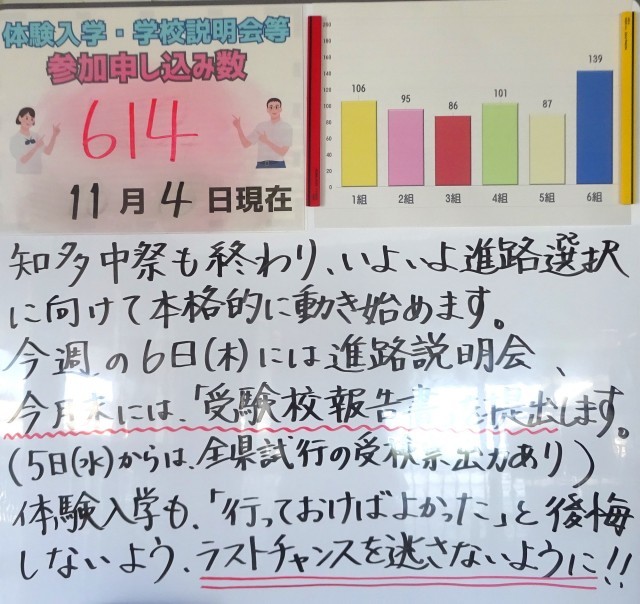 体験入学・学校説明会等
参加申し込み数
614
11月4日現在
200
180
160
140
120
100
80
60
40
20
0
106
95
86
101
87
139
1組
2組
3組
4組
5組
6組
知多中祭も終わり、いよいよ進路選択
に向けて本格的に動き始めます。
今週の6日(木)には進路説明会、
今月末には、「受験校報告書」を提出します。
(5日(水)からは、全県試行の受検票出力あり)
体験入学も、「行っておけばよかった」と後悔
しないよう、ラストチャンスを逃さないように!!